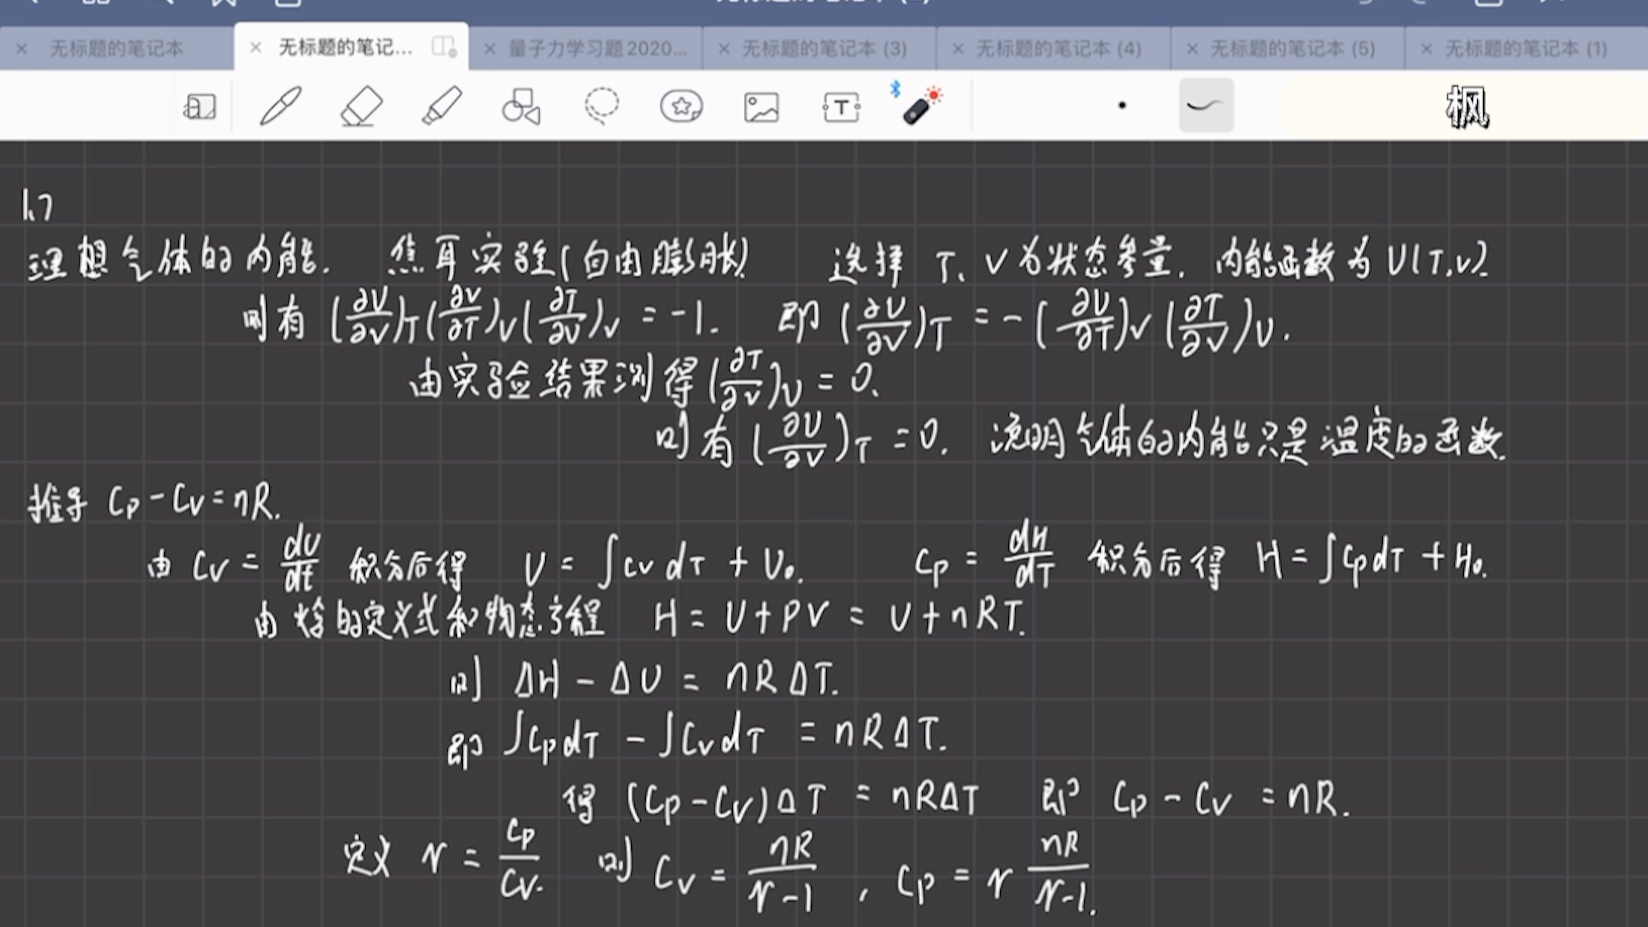 无标题的笔记本 (2)
无标题的笔记本 无标题的笔记... 量子力学习题2020... 无标题的笔记本 (3) 无标题的笔记本 (4) 无标题的笔记本 (5) 无标题的笔记本 (1)
T 枫
1.7
理想气体的内能. 焦耳实验(自由膨胀) 选择 T、V为状态参量. 内能函数为 U(T,V).
则有 (∂U/∂V)_T (∂V/∂T)_U (∂T/∂U)_V = -1. 即 (∂U/∂V)_T = -(∂U/∂T)_V (∂T/∂V)_U.
由实验结果测得 (∂T/∂V)_U = 0.
则有 (∂U/∂V)_T = 0. 说明气体的内能只是温度的函数.
推导 Cp - Cv = nR.
由 Cv = dU/dt 积分后得 U = ∫Cv dT + U₀. Cp = dH/dT 积分后得 H = ∫Cp dT + H₀.
由焓的定义式和物态方程 H = U + PV = U + nRT.
则 ΔH - ΔU = nRΔT.
即 ∫Cp dT - ∫Cv dT = nRΔT.
得 (Cp - Cv)ΔT = nRΔT 即 Cp - Cv = nR.
定义 γ = Cp/Cv. 则 Cv = nR/γ-1 , Cp = γ nR/γ-1.